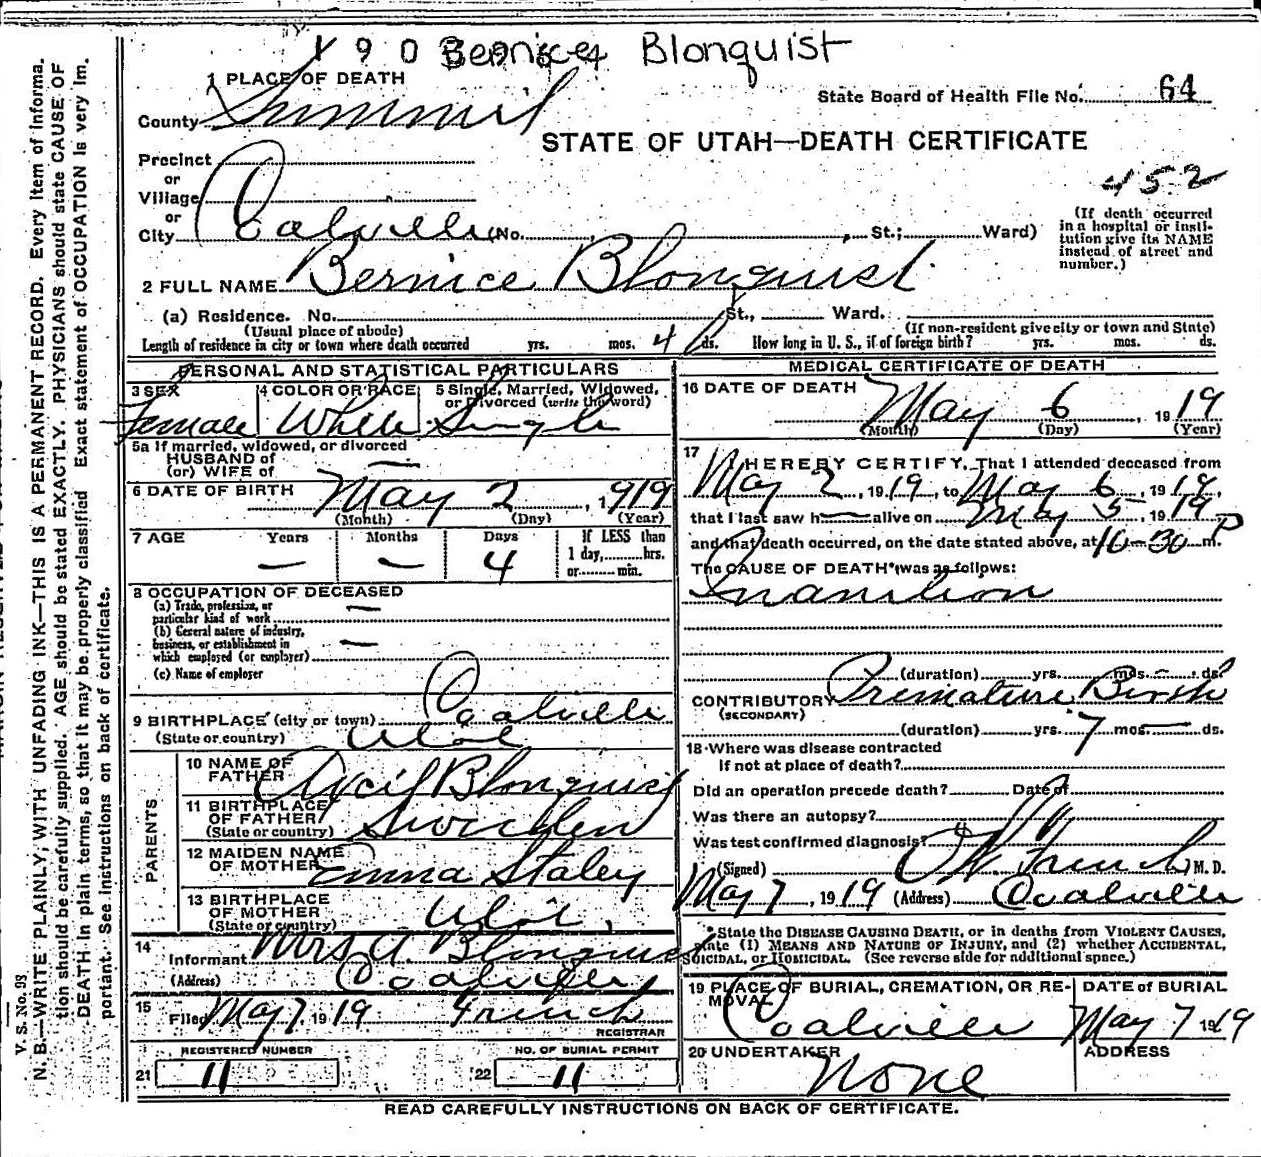 1 9 0 3 9 6 4 Bernice Blonquist
1 PLACE OF DEATH
State Board of Health File No. 64
County Summit
STATE OF UTAH—DEATH CERTIFICATE
Precinct
or
452
Village
or
City Coalville (No. , St.; Ward)
(If death occurred
in a hospital or insti-
tution give its NAME
instead of street and
number.)
2 FULL NAME Bernice Blonquist
(a) Residence. No. St., Ward.
(Usual place of abode) (If non-resident give city or town and State)
Length of residence in city or town where death occurred yrs. mos. 4 ds. How long in U. S., if of foreign birth? yrs. mos. ds.
PERSONAL AND STATISTICAL PARTICULARS
3 SEX 4 COLOR OR RACE 5 Single, Married, Widowed,
or Divorced (write the word)
Female White Single
5a If married, widowed, or divorced
HUSBAND of
(or) WIFE of —
6 DATE OF BIRTH May 2, 1919
(Month) (Day) (Year)
7 AGE Years Months Days If LESS than
1 day, hrs.
or min.
— — 4
8 OCCUPATION OF DECEASED
(a) Trade, profession, or
particular kind of work —
(b) General nature of industry,
business, or establishment in
which employed (or employer) —
(c) Name of employer
9 BIRTHPLACE (city or town) Coalville
(State or country) Utah
PARENTS
10 NAME OF
FATHER Blonquist
11 BIRTHPLACE
OF FATHER
(State or country) Sweden
12 MAIDEN NAME
OF MOTHER Emma Staley
13 BIRTHPLACE
OF MOTHER
(State or country) Utah,
14
Informant Mrs A. Blonquist
(Address) Coalville
15
Filed May 7, 1919 French
REGISTRAR
REGISTERED NUMBER NO. OF BURIAL PERMIT
21 11 22 11
MEDICAL CERTIFICATE OF DEATH
16 DATE OF DEATH May 6, 1919
(Month) (Day) (Year)
17
I HEREBY CERTIFY, That I attended deceased from
May 2, 1919, to May 6, 1919,
that I last saw h— alive on May 5, 1919
and that death occurred, on the date stated above, at 10-30 P m.
The CAUSE OF DEATH* was as follows:
Inanition
(duration) yrs. mos. — ds.
CONTRIBUTORY Premature Birth
(SECONDARY)
(duration) yrs. 7 mos. — ds.
18 Where was disease contracted
if not at place of death?
Did an operation precede death? Date of
Was there an autopsy?
Was test confirmed diagnosis?
(Signed) French M. D.
May 7, 1919 (Address) Coalville
*State the DISEASE CAUSING DEATH, or in deaths from VIOLENT CAUSES,
state (1) MEANS AND NATURE OF INJURY, and (2) whether ACCIDENTAL,
SUICIDAL, or HOMICIDAL. (See reverse side for additional space.)
19 PLACE OF BURIAL, CREMATION, OR RE-
MOVAL Coalville
DATE of BURIAL
May 7 1919
20 UNDERTAKER None
ADDRESS
READ CAREFULLY INSTRUCTIONS ON BACK OF CERTIFICATE.
V. S. No. 93
N. B.—WRITE PLAINLY, WITH UNFADING INK—THIS IS A PERMANENT RECORD. Every item of informa-
tion should be carefully supplied. AGE should be stated EXACTLY. PHYSICIANS should state CAUSE OF
DEATH in plain terms, so that it may be properly classified. Exact statement of OCCUPATION is very im-
portant. See instructions on back of certificate.